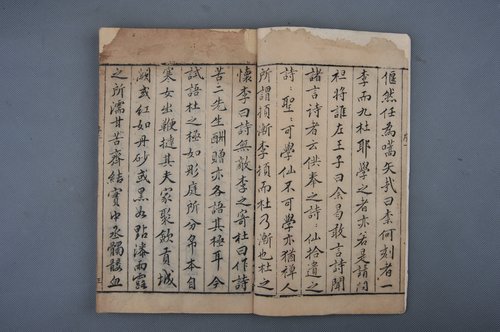 偃然任為嚆矢哉曰柰何刻者一
李而九杜耶學之者亦若是請問
袒將誰左王子曰余曷敢言詩聞
諸言詩者云供奉之詩：仙拾遺之
詩：聖：可學仙不可學亦猶禪人
所謂頓漸李頓而杜乃漸也杜之
懷李曰詩無敵李之寄杜曰作詩
苦二先生酬贈亦各語其極耳今
試語杜之極如彤庭所分帛本自
寒女出鞭撻其夫家聚歛貢城
闕或紅如丹砂或黑如點漆雨露
之所濡甘苦齊結實中丞髑髏血